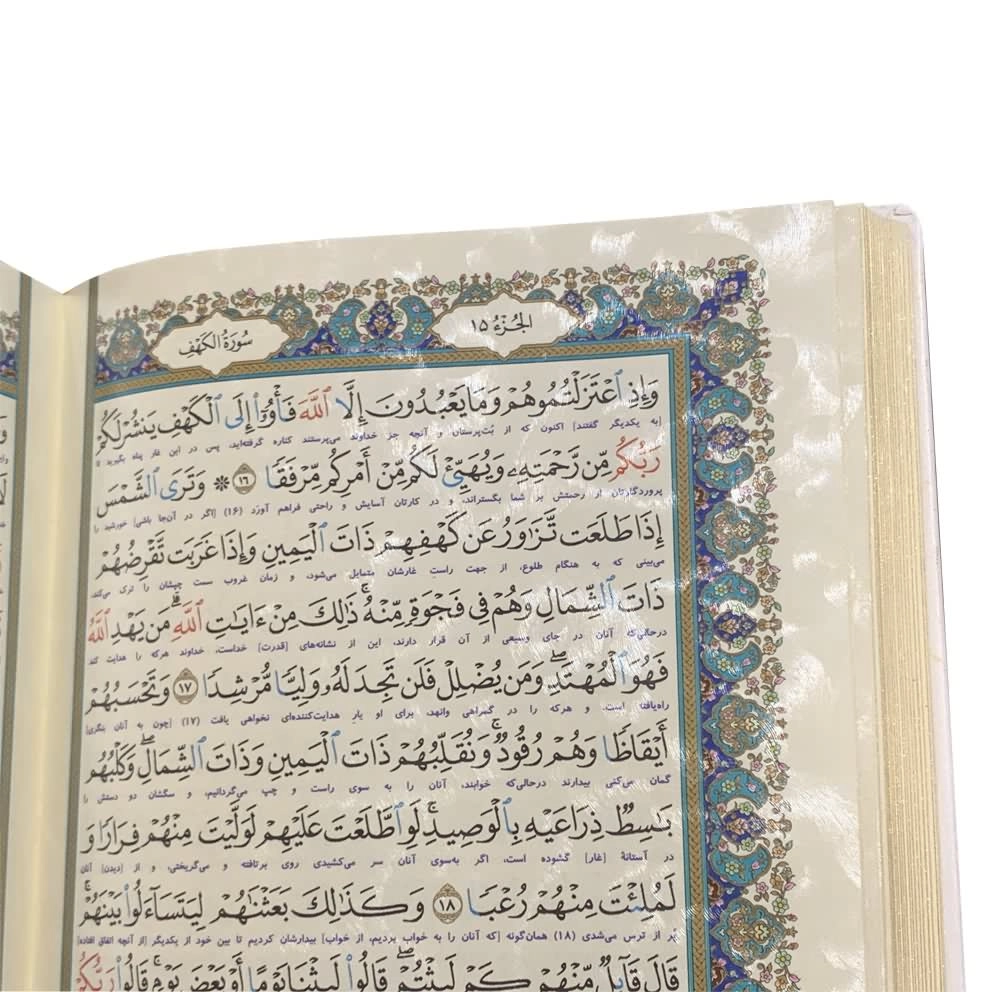 الجُزْءُ ١٥
سُورَةُ الكَهْفِ
وَإِذِ ٱعْتَزَلْتُمُوهُمْ وَمَا يَعْبُدُونَ إِلَّا ٱللَّهَ فَأْوُۥٓا۟ إِلَى ٱلْكَهْفِ يَنشُرْ لَكُمْ
[به یکدیگر گفتند] اکنون که از بُت‌پرستان و آنچه جز خداوند می‌پرستند کناره گرفته‌اید، پس در این غار پناه بگیرید تا
رَبُّكُم مِّن رَّحْمَتِهِۦ وَيُهَيِّئْ لَكُم مِّنْ أَمْرِكُم مِّرْفَقًا ١٦ ۞ وَتَرَى ٱلشَّمْسَ
پروردگارتان از رحمتش بر شما بگستراند، و در کارتان آسایش و راحتی فراهم آورَد (۱۶) [اگر در آن‌جا باشی] خورشید را
إِذَا طَلَعَت تَّزَٰوَرُ عَن كَهْفِهِمْ ذَاتَ ٱلْيَمِينِ وَإِذَا غَرَبَت تَّقْرِضُهُمْ
می‌بینی که به هنگام طلوع، از جهت راست غارشان متمایل می‌شود، و زمان غروب سمت چپشان را ترک می‌کند،
ذَاتَ ٱلشِّمَالِ وَهُمْ فِى فَجْوَةٍ مِّنْهُ ۚ ذَٰلِكَ مِنْ ءَايَٰتِ ٱللَّهِ ۗ مَن يَهْدِ ٱللَّهُ
درحالی‌که آنان در جای وسیعی از آن قرار دارند، این از نشانه‌های [قدرت] خداست، خداوند هرکه را هدایت کند
فَهُوَ ٱلْمُهْتَدِ ۖ وَمَن يُضْلِلْ فَلَن تَجِدَ لَهُۥ وَلِيًّا مُّرْشِدًا ١٧ وَتَحْسَبُهُمْ
راه‌یافته است، و هرکه را در گمراهی وانهد، برای او یار هدایت‌کننده‌ای نخواهی یافت (۱۷) [چون به آنان بنگری]
أَيْقَاظًا وَهُمْ رُقُودٌ ۚ وَنُقَلِّبُهُمْ ذَاتَ ٱلْيَمِينِ وَذَاتَ ٱلشِّمَالِ ۖ وَكَلْبُهُم
گمان می‌کنی بیدارند درحالی‌که خوابند، آنان را به سوی راست و چپ می‌گردانیم، و سگشان دو دستش را
بَٰسِطٌ ذِرَاعَيْهِ بِٱلْوَصِيدِ ۚ لَوِ ٱطَّلَعْتَ عَلَيْهِمْ لَوَلَّيْتَ مِنْهُمْ فِرَارًا وَ
در آستانهٔ [غار] گشوده است، اگر به‌سوی آنان سر می‌کشیدی روی برتافته و می‌گریختی، و از [دیدن] آنان
لَمُلِئْتَ مِنْهُمْ رُعْبًا ١٨ وَكَذَٰلِكَ بَعَثْنَٰهُمْ لِيَتَسَآءَلُوا۟ بَيْنَهُمْ ۚ
پُر از ترس می‌شدی (۱۸) همان‌گونه [که آنان را به خواب بردیم، از خواب] بیدارشان کردیم تا بین خود از یکدیگر [از آنچه اتفاق افتاده]
قَالَ قَآئِلٌ مِّنْهُمْ كَمْ لَبِثْتُمْ ۖ قَالُوا۟ لَبِثْنَا يَوْمًا أَوْ بَعْضَ يَوْمٍ ۚ قَالُوا۟ رَبُّكُمْ